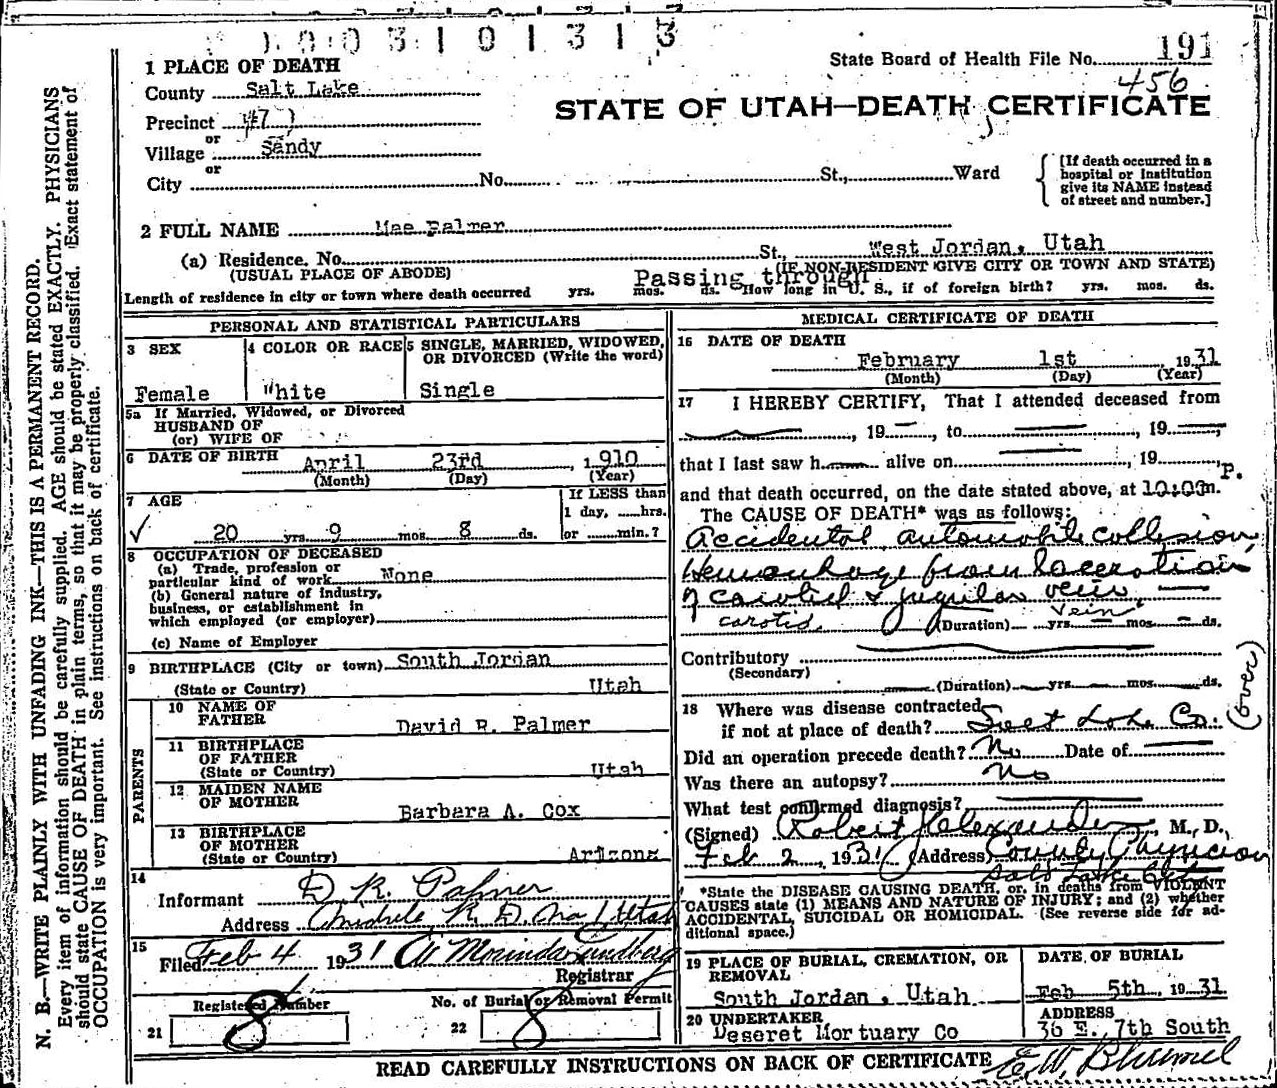 1003101313
State Board of Health File No. 191
456
STATE OF UTAH—DEATH CERTIFICATE
1 PLACE OF DEATH
County Salt Lake
Precinct #7
or
Village Sandy
or
City No. St., Ward
[If death occurred in a
hospital or institution
give its NAME instead
of street and number.]
2 FULL NAME Mae Palmer
(a) Residence. No. St., West Jordan, Utah
(USUAL PLACE OF ABODE) (IF NON-RESIDENT GIVE CITY OR TOWN AND STATE)
Passing through
Length of residence in city or town where death occurred yrs. mos. ds. How long in U. S., if of foreign birth? yrs. mos. ds.
PERSONAL AND STATISTICAL PARTICULARS
3 SEX
Female
4 COLOR OR RACE
White
5 SINGLE, MARRIED, WIDOWED,
OR DIVORCED (Write the word)
Single
5a If Married, Widowed, or Divorced
HUSBAND OF
(or) WIFE OF
6 DATE OF BIRTH April 23rd, 1910
(Month) (Day) (Year)
7 AGE
20 yrs. 9 mos. 8 ds.
If LESS than
1 day, hrs.
or min.?
8 OCCUPATION OF DECEASED
(a) Trade, profession or
particular kind of work None
(b) General nature of industry,
business, or establishment in
which employed (or employer)
(c) Name of Employer
9 BIRTHPLACE (City or town) South Jordan
(State or Country) Utah
PARENTS
10 NAME OF
FATHER David R. Palmer
11 BIRTHPLACE
OF FATHER
(State or Country) Utah
12 MAIDEN NAME
OF MOTHER Barbara A. Cox
13 BIRTHPLACE
OF MOTHER
(State or Country) Arizona
14
Informant D R. Palmer
Address Midvale R. D. No 1 Utah
15
Filed Feb 4 1931
Registrar
Registered Number
21 8
No. of Burial or Removal Permit
22 8
MEDICAL CERTIFICATE OF DEATH
16 DATE OF DEATH
February 1st, 1931
(Month) (Day) (Year)
17 I HEREBY CERTIFY, That I attended deceased from
, 19 , to , 19 ,
that I last saw h alive on , 19 ,
and that death occurred, on the date stated above, at 10:00 P. m.
The CAUSE OF DEATH* was as follows:
Accidental automobile collision,
Hemorrhage from laceration
of carotid & jugular vein
carotid vein
(Duration) yrs. mos. ds.
Contributory
(Secondary)
(Duration) yrs. mos. ds.
18 Where was disease contracted
if not at place of death? Salt Lake Co.
(over)
Did an operation precede death? No Date of
Was there an autopsy? No
What test confirmed diagnosis?
(Signed) Robert Alexander, M. D.,
Feb 2, 1931 (Address) County Physician
Salt Lake City
*State the DISEASE CAUSING DEATH, or, in deaths from VIOLENT
CAUSES state (1) MEANS AND NATURE OF INJURY; and (2) whether
ACCIDENTAL, SUICIDAL OR HOMICIDAL. (See reverse side for ad-
ditional space.)
19 PLACE OF BURIAL, CREMATION, OR
REMOVAL
South Jordan, Utah
DATE OF BURIAL
Feb 5th, 1931
20 UNDERTAKER
Deseret Mortuary Co
ADDRESS
36 E. 7th South
READ CAREFULLY INSTRUCTIONS ON BACK OF CERTIFICATE
N. B.—WRITE PLAINLY WITH UNFADING INK—THIS IS A PERMANENT RECORD.
Every item of information should be carefully supplied. AGE should be stated EXACTLY. PHYSICIANS
should state CAUSE OF DEATH in plain terms, so that it may be properly classified. Exact statement of
OCCUPATION is very important. See instructions on back of certificate.